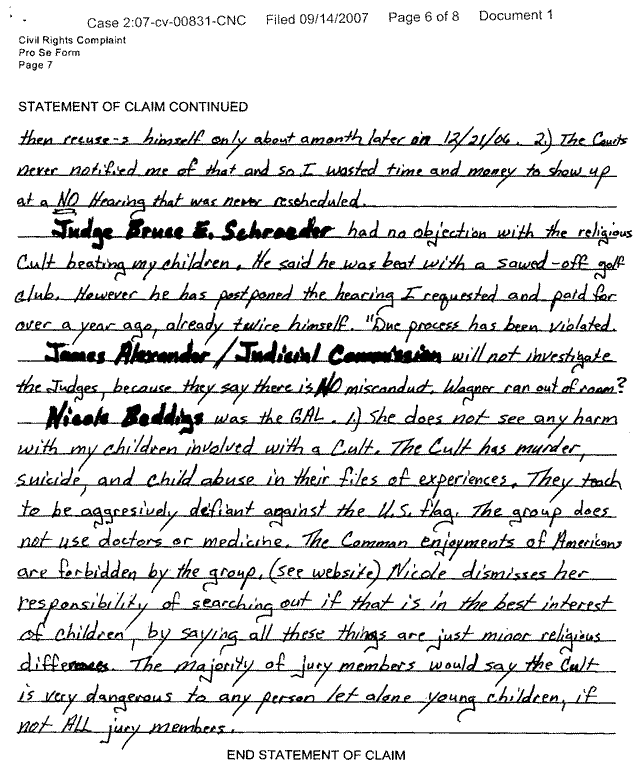 Case 2:07-cv-00831-CNC Filed 09/14/2007 Page 6 of 8 Document 1
Civil Rights Complaint
Pro Se Form
Page 7
STATEMENT OF CLAIM CONTINUED
then recuse-s himself only about a month later on 12/21/06. 2.) The Courts
never notified me of that and so I wasted time and money to show up
at a NO Hearing that was never rescheduled.
Judge Bruce E. Schroeder had no objection with the religious
Cult beating my children. He said he was beat with a sawed-off golf
club. However he has postponed the hearing I requested and paid for
over a year ago, already twice himself. "Due process has been violated.
James Alexander / Judicial Commission will not investigate
the Judges, because they say there is NO misconduct. Wagner ran out of room?
Nicole Beddings was the GAL. 1.) She does not see any harm
with my children involved with a Cult. The Cult has murder,
suicide, and child abuse in their files of experiences. They teach
to be aggresively defiant against the U.S. flag. The group does
not use doctors or medicine. The Comman enjoyments of Americans
are forbidden by the group. (see website) Nicole dismisses her
responsibility of searching out if that is in the best interest
of children, by saying all these things are just minor religious
differences. The majority of jury members would say the Cult
is very dangerous to any person let alone young children, if
not ALL jury members.
END STATEMENT OF CLAIM